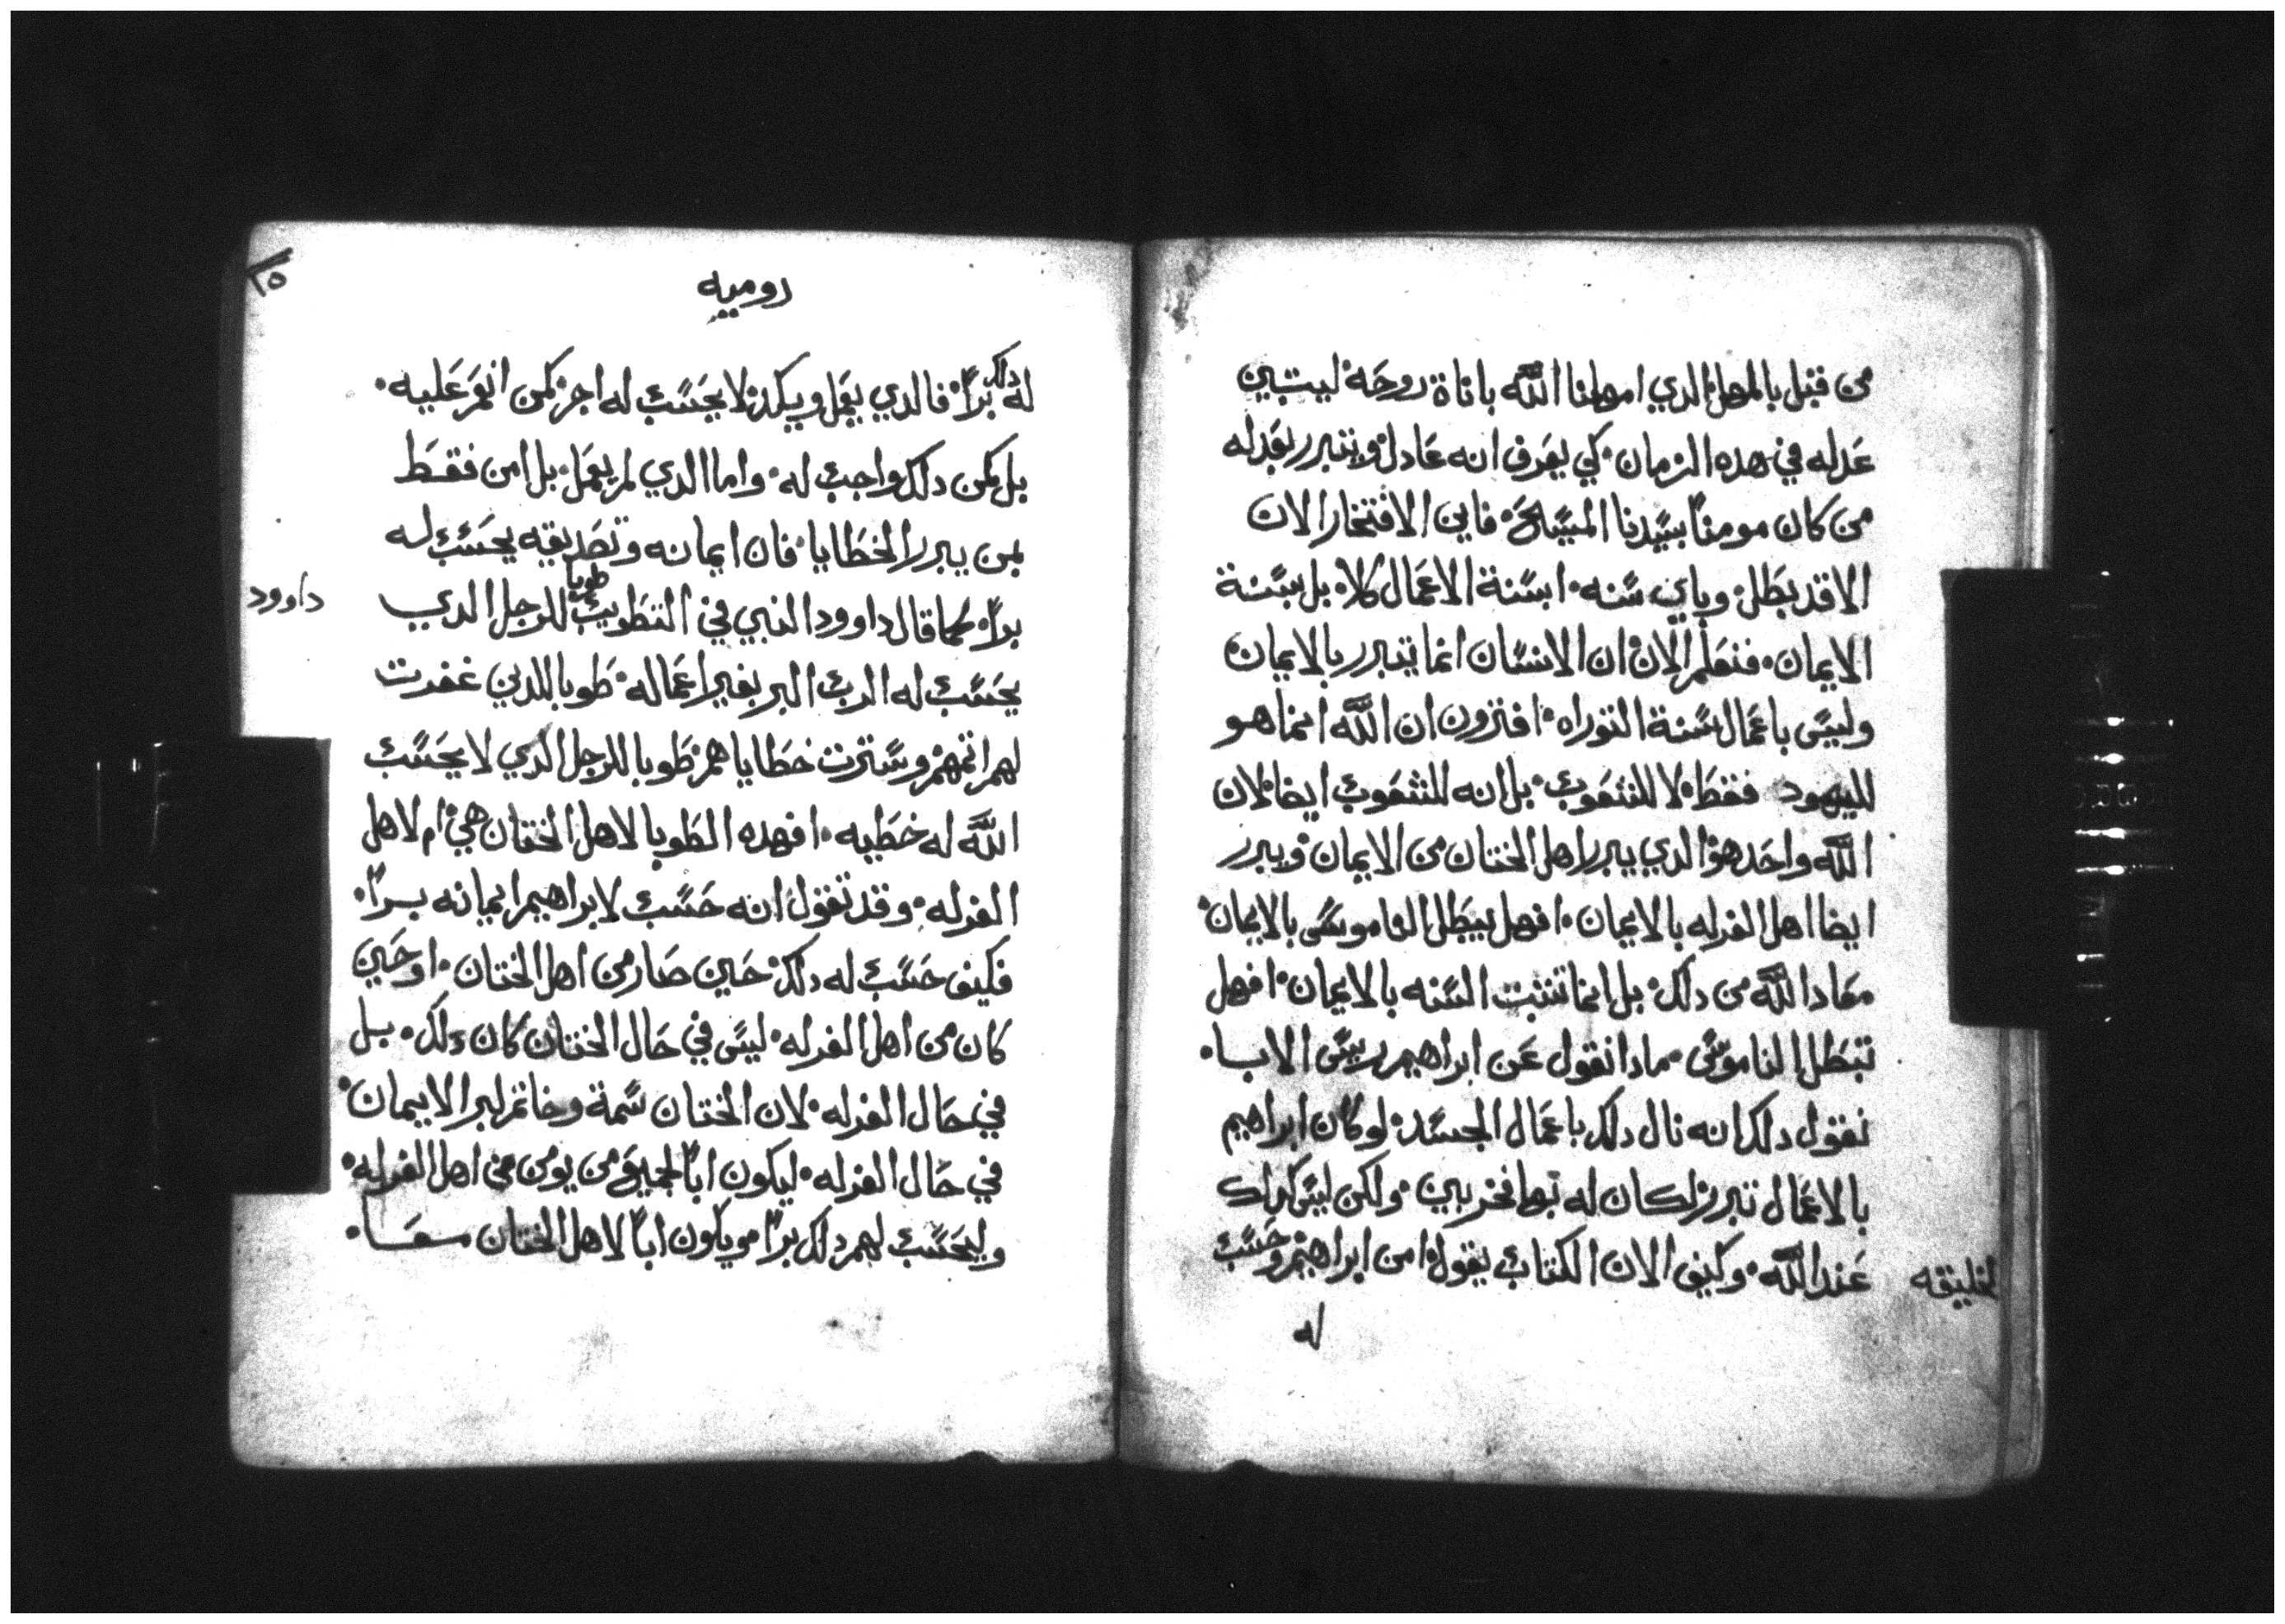 من قبل بالمهل الدي امهلنا الله باناة روحه ليتبين
عدله في هده الزمان كي يعرف انه عادل ويتبرر بعدله
من كان مومناً بسيدنا المسيح فاين الافتخار الان
الا قد بطل وباي سنه ابسنة الاعمال كلا بل بسنة
الايمان فنعلم الان ان الانسان انما يتبرر بالايمان
وليس باعمال سنة التوراه افترون ان الله انما هو
لليهود فقط لا للشعوب بل انه للشعوب ايضا لان
الله واحد هو الدي يبرر اهل الختان من الايمان ويبرر
ايضا اهل الغرله بالايمان افهل يبطل الناموس بالايمان
معاد الله من دلك بل انما تثبت السنه بالايمان افهل
تبطل الناموس مادا نقول عن ابراهيم رييس الابا
نقول دلك انه نال دلك باعمال الجسد لو كان ابراهيم
بالاعمال تبرر لكان له بها فخر بين ولكن ليس كداك
عند الله وكيف الان الكتاب يقول امن ابراهيم وحسب
لخليقه
له
٢٥
روميه
له دلك براً فالدي يعمل ويكد لا يحسب له اجر كمن انعم عليه
بل كمن دلك واجب له واما الدي لم يعمل بل امن فقط
بمن يبرر الخطايا فان ايمانه وتصديقه يحسب له
براً كما قال داوود النبي في التطويب طوبا للرجل الدي
داوود
يحسب له الرب البر بغير اعماله طوبا للدين غفرت
لهم اتمهم وسترت خطاياهم طوبا للرجل الدي لا يحسب
الله له خطيه افهده الطوبا لاهل الختان هي ام لاهل
الغرله وقد تقول انه حسب لابراهيم ايمانه براً
فكيف حسب له دلك حين صار من اهل الختان او حين
كان من اهل الغرله ليس في حال الختان كان دلك بل
في حال الغرله لان الختان سمة وخاتم لبر الايمان
في حال الغرله ليكون اباً لجميع من يومن من اهل الغرله
وليحسب لهم دلك براً ويكون اباً لاهل الختان